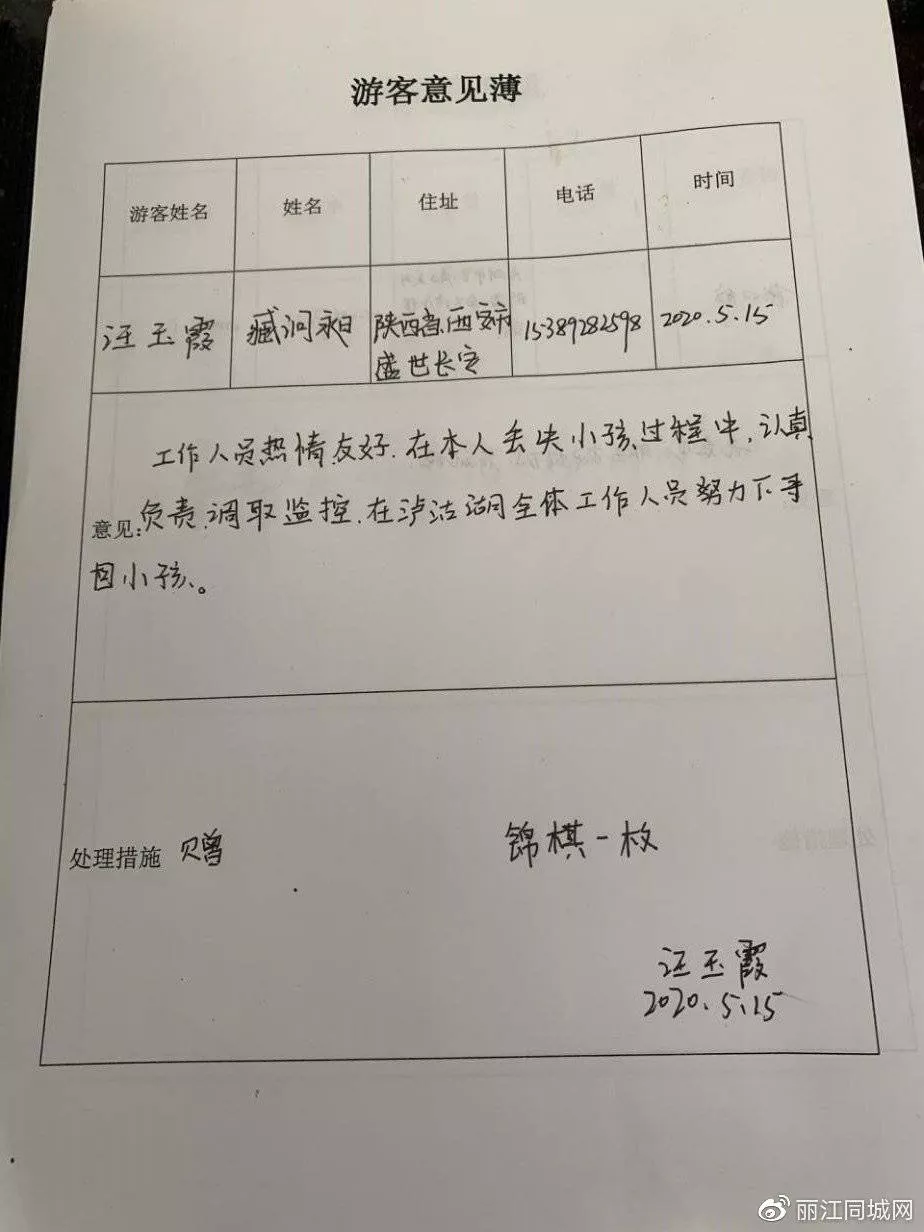 游客意见薄
游客姓名 姓名 住址 电话 时间
汪玉霞 臧润 陕西省西安市 15389282598 2020.5.15
盛世长安
工作人员热情友好.在本人丢失小孩过程中,认真
意见:负责,调取监控.在泸沽湖全体工作人员努力下寻
回小孩。
处理措施 赠 锦棋一枚
汪玉霞
2020.5.15
丽江同城网